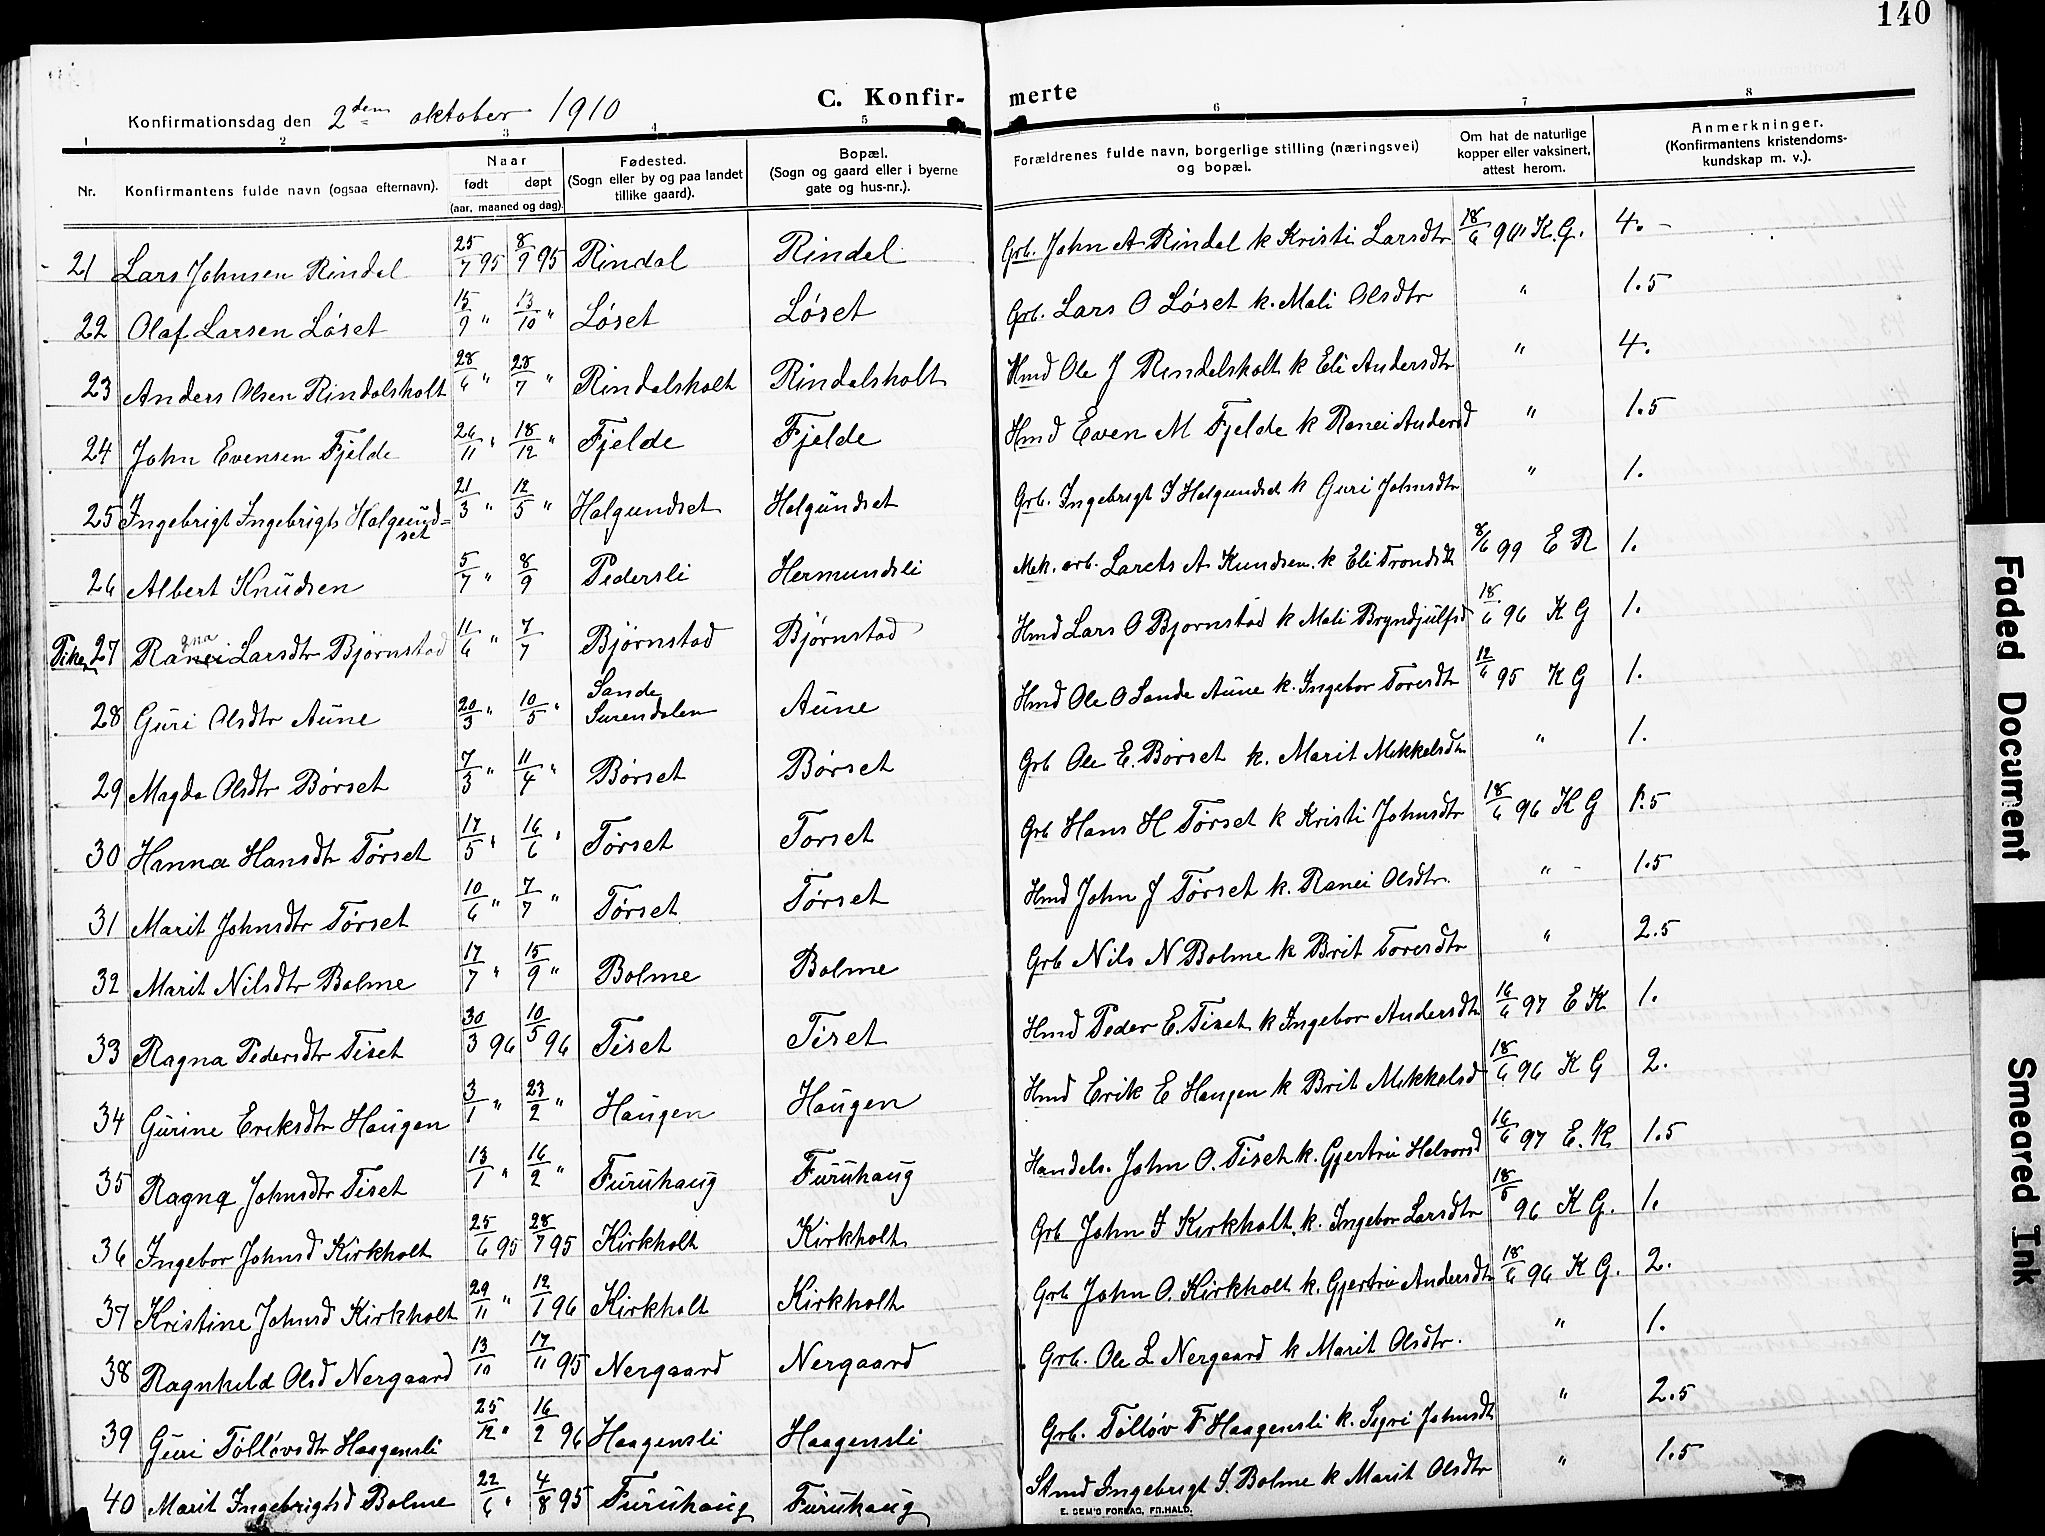 140
C. Konfir- merte
Konfirmationsdag den 2den oktober 1910
1 2 3 4 5 6 7 8
Nr. Konfirmantens fulde navn (ogsaa efternavn). Naar født døpt (aar, maaned og dag). Fødested. (Sogn eller by og paa landet tillike gaard). Bopæl. (Sogn og gaard eller i byerne gate og hus-nr.). Forældrenes fulde navn, borgerlige stilling (næringsvei) og bopæl. Om hat de naturlige kopper eller vaksinert, attest herom. Anmerkninger. (Konfirmantens kristendoms-kundskap m. v.).
21 Lars Johnsen Rindal 25/7 95 8/9 95 Rindal Rindal Grb. John A Rindal k Kristi Larsdtr 18/6 96 K.G. 4.
22 Olaf Larsen Løset 15/9 " 13/10 " Løset Løset Grb. Lars O Løset k. Mali Olsdtr " 1.5
23 Anders Olsen Rindalsholt 28/6 " 28/7 " Rindalsholt Rindalsholt Hmd Ole J Rindalsholt k Eli Andersdtr " 4.
24 John Evensen Fjelde 26/11 " 18/12 " Fjelde Fjelde Hmd Even M Fjelde k Ranei Andersd " 1.5
25 Ingebrigt Ingebrigts Halgund=set 21/3 " 12/5 " Halgundset Halgundset Grb. Ingebrigt I Halgundset k Guri Johnsdtr " 1.
26 Albert Knudsen 5/7 " 8/9 Pedersli Hermundsli Mek. arb. Larets A Knudsen k Eli Trondsdt 8/6 99 E R 1.
Piker 27 Ragna Larsdtr Bjørnstad 11/6 " 7/7 Bjørnstad Bjørnstad Hmd Lars O Bjørnstad k Mali Bryndjulfsd 18/6 96 K G 1.
28 Guri Olsdtr Aune 20/3 " 10/5 " Sande Surendalen Aune Hmd Ole O Sande Aune k. Ingebor Toresdtr 12/6 95 K G 1.
29 Magda Olsdtr Børset 7/3 " 11/4 " Børset Børset Grb Ole E. Børset k. Marit Mikkelsdtr " 1.
30 Hanna Hansdtr Tørset 17/5 " 16/6 " Tørset Tørset Grb Hans H Tørset k Kristi Johnsdtr 18/6 96 K G 1.5
31 Marit Johnsdtr Tørset 10/6 " 7/7 " Tørset Tørset Hmd John J Tørset k. Ranei Olsdtr. " 1.5
32 Marit Nilsdtr Bolme 17/7 " 15/9 " Bolme Bolme Grb Nils N Bolme k Brit Toresdtr " 2.5
33 Ragna Pedersdtr Tiset 30/3 96 10/5 96 Tiset Tiset Hmd Peder E. Tiset k Ingebor Andersdtr 16/6 97 E K 1.
34 Gurine Eriksdtr Haugen 3/1 " 23/2 " Haugen Haugen Hmd Erik E Haugen k Brit Mikkelsd 18/6 96 K G 2.
35 Ragna Johnsdtr Tiset 13/1 " 16/2 " Furuhaug Furuhaug Handels. John O. Tiset k. Gjertru Halvorsd 16/6 97 E. K 1.5
36 Ingebor Johnsd Kirkholt 25/6 95 28/7 95 Kirkholt Kirkholt Grb John I Kirkholt k. Ingebor Larsdtr 18/6 96 K G. 1.
37 Kristine Johnsd Kirkholt 29/11 " 12/1 96 Kirkholt Kirkholt Grb John O. Kirkholt k. Gjertru Andersdtr 18/6 96 K G. 2.
38 Ragnhild Olsd Nergaard 13/10 17/11 95 Nergaard Nergaard Grb. Ole L Nergaard k Marit Olsdtr. " 1.
39 Guri Tølløvsdtr Haagensli 25/12 " 16/2 96 Haagensli Haagensli Grb. Tølløv F Haagensli k. Sigri Johnsdt " 2.5
40 Marit Ingebrigtsd Bolme 22/6 " 4/8 95 Furuhaug Furuhaug Stmd Ingebrigt I. Bolme k Marit Olsdtr " 1.5
E. SEM'S FORLAG, FR.HALD.
Faded Document
Smeared Ink